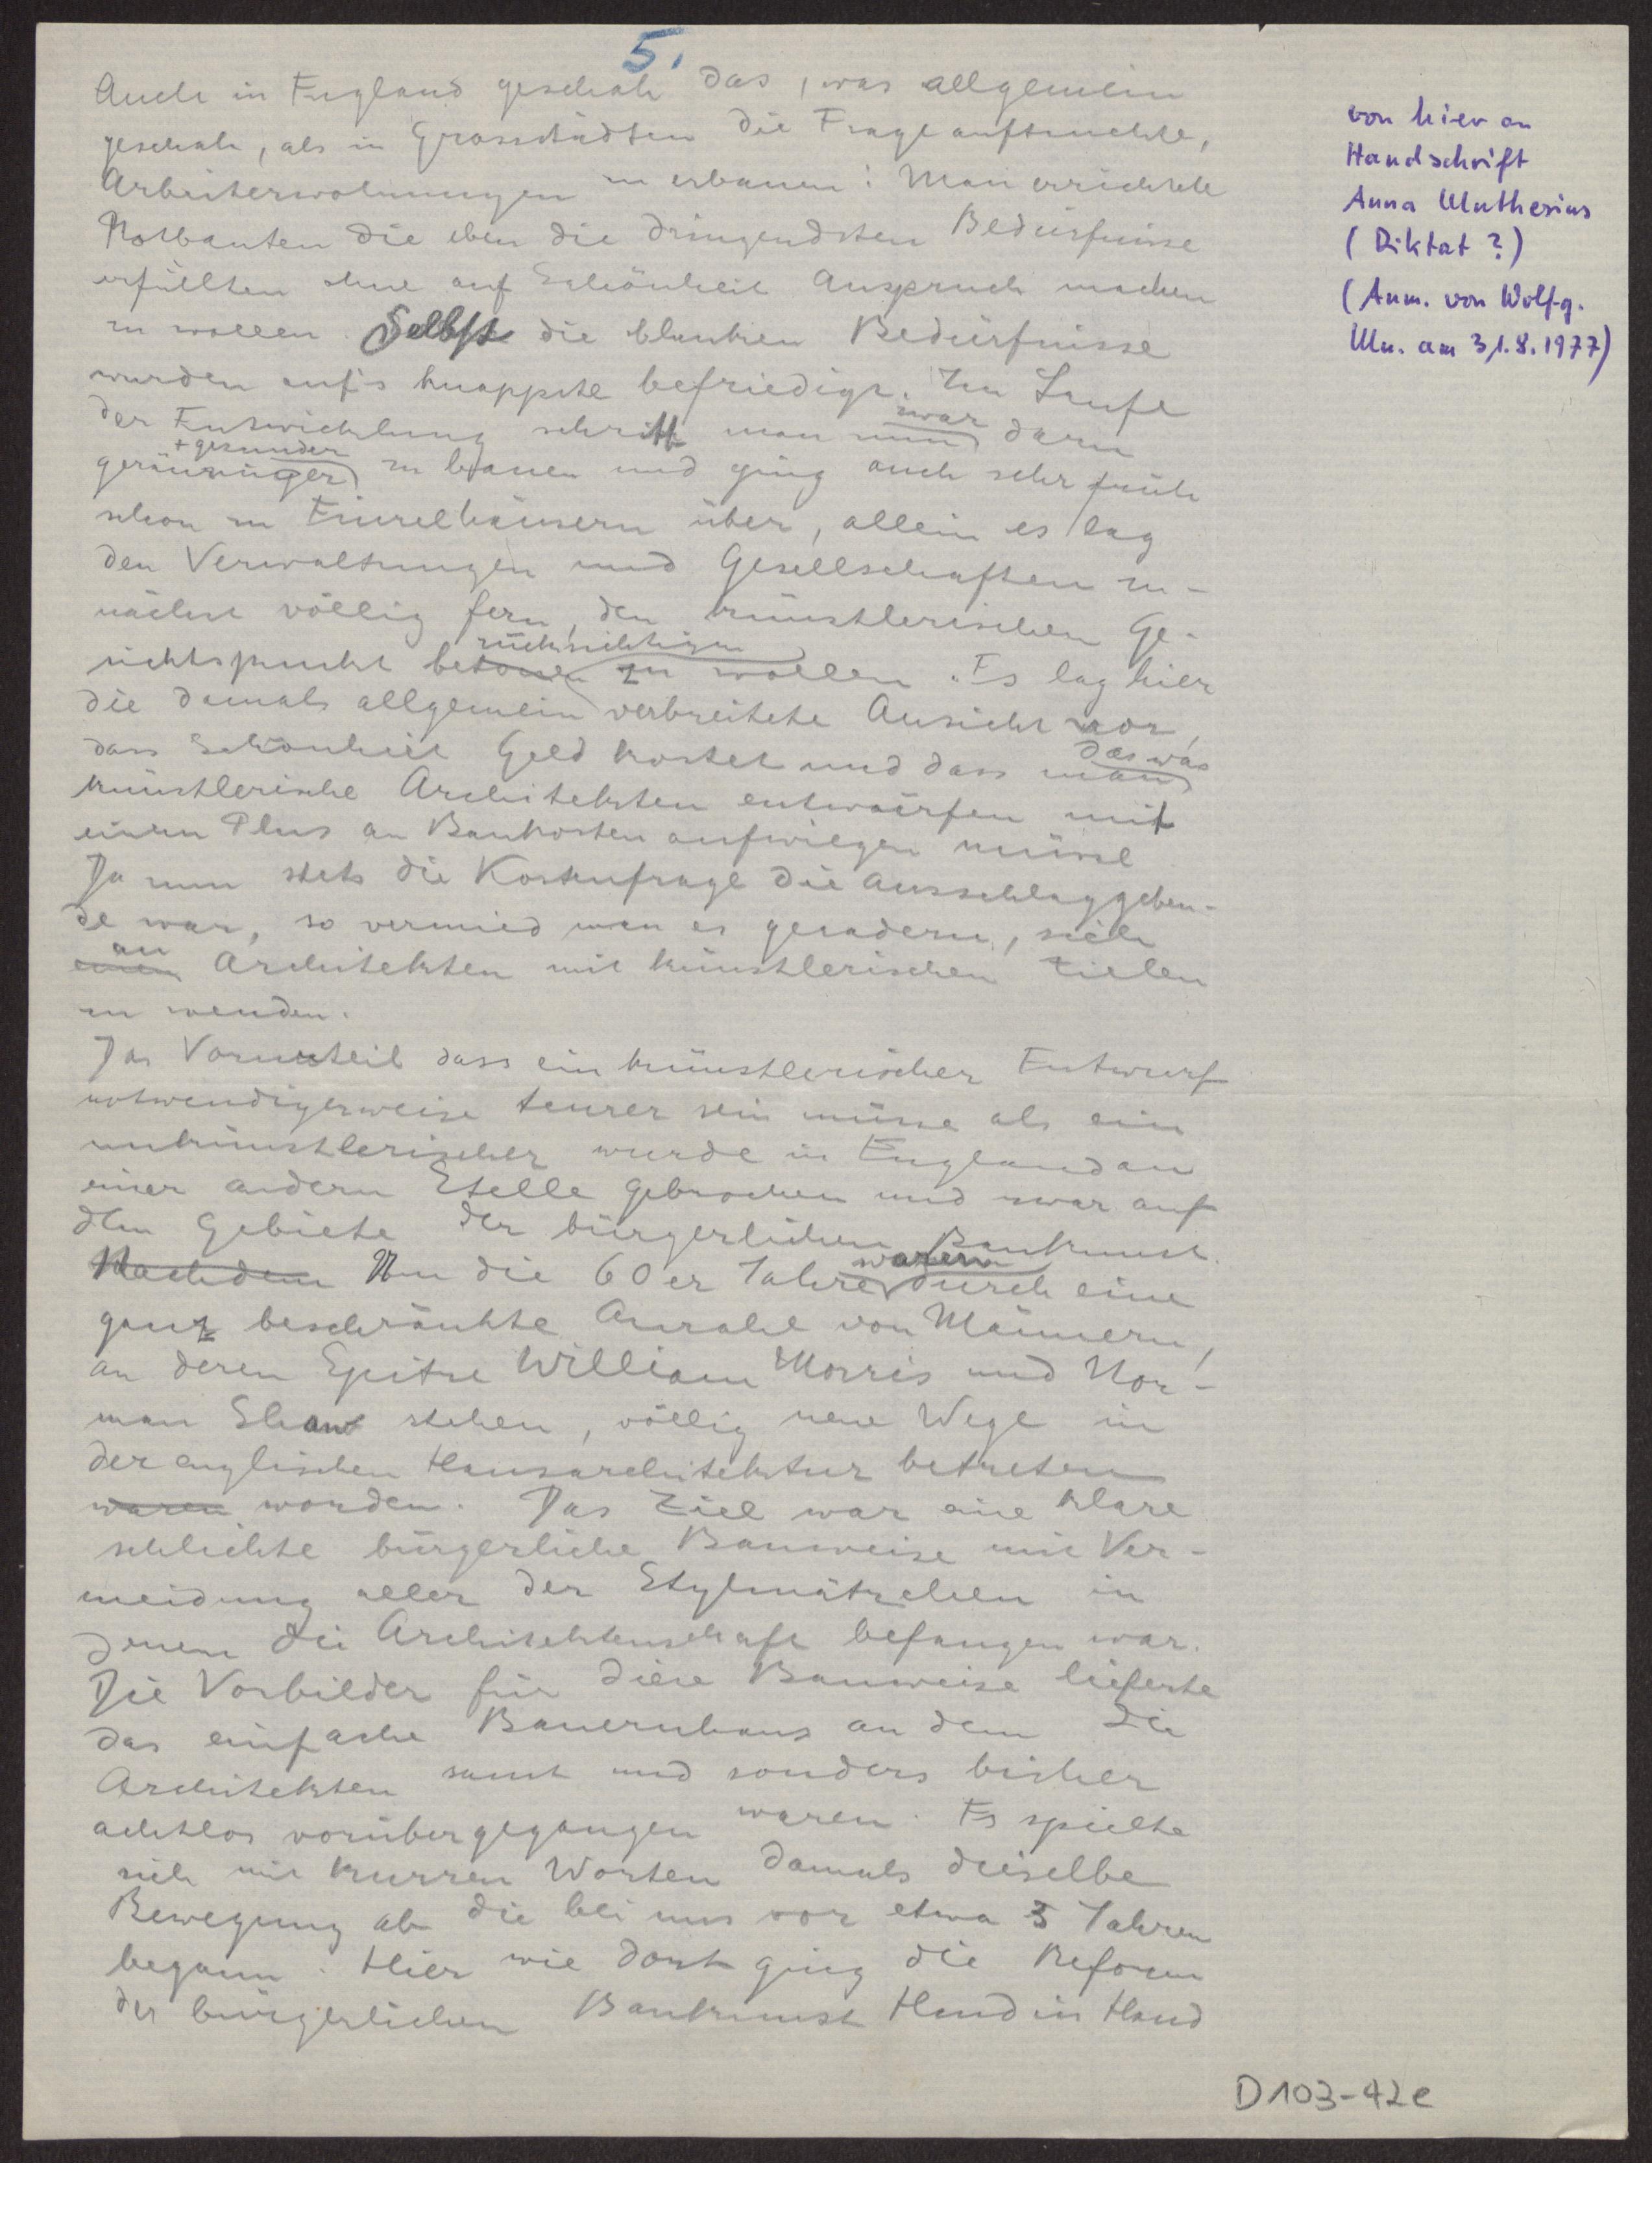 5.
Auch in England geschah das, was allgemein
geschah, als in Grossstädten die Frage auftauchte,
Arbeiterwohnungen zu erbauen: Man errichtete
Notbauten die eben die dringendsten Bedürfnisse
erfüllten ohne auf Schönheit Anspruch machen
zu wollen. Selbst die blanken Bedürfnisse
wurden auf's knappste befriedigt. Im Laufe
der Entwicklung schritt man nun zwar dazu
geräumiger + gesunder zu bauen und ging auch sehr früh
schon zu Einzelhäusern über, allein es lag
den Verwaltungen und Gesellschaften zu-
nächst völlig fern, den künstlerischen Ge-
sichtspunkt betonen rücksichtigen zu wollen. Es lag hier
die damals allgemein verbreitete Ansicht vor,
dass Schönheit Geld kostet und dass man das was
künstlerische Architekten entwürfen mit
einem Plus an Baukosten aufwiegen müsse
Da nun stets die Kostenfrage die ausschlaggeben-
de war, so vermied man es geradezu, sich
einen an Architekten mit künstlerischen Zielen
zu wenden.
Das Vorurteil dass ein künstlerischer Entwurf
notwendigerweise teurer sein müsse als ein
unkünstlerischer wurde in England an
einer andern Stelle gebrochen und zwar auf
dem Gebiete der bürgerlichen Baukunst.
Nachdem Um die 60er Jahre waren durch eine
ganz beschränkte Anzahl von Männern,
an deren Spitze William Morris und Nor-
man Shaw stehen, völlig neue Wege in
der englischen Hausarchitektur betreten
waren worden. Das Ziel war eine klare
schlichte bürgerliche Bauweise mit Ver-
meidung aller der Stylmätzchen in
denen die Architektenschaft befangen war.
Die Vorbilder für diese Bauweise lieferte
das einfache Bauernhaus an dem die
Architekten samt und sonders bisher
achtlos vorübergegangen waren. Es spielte
sich mit kurzen Worten damals dieselbe
Bewegung ab die bei uns vor etwa 5 Jahren
begann. Hier wie dort ging die Reform
der bürgerlichen Baukunst Hand in Hand
von hier an
Handschrift
Anna Muthesius
(Diktat ?)
(Anm. von Wolfg.
Mu. am 31.8.1977)
D103-42e